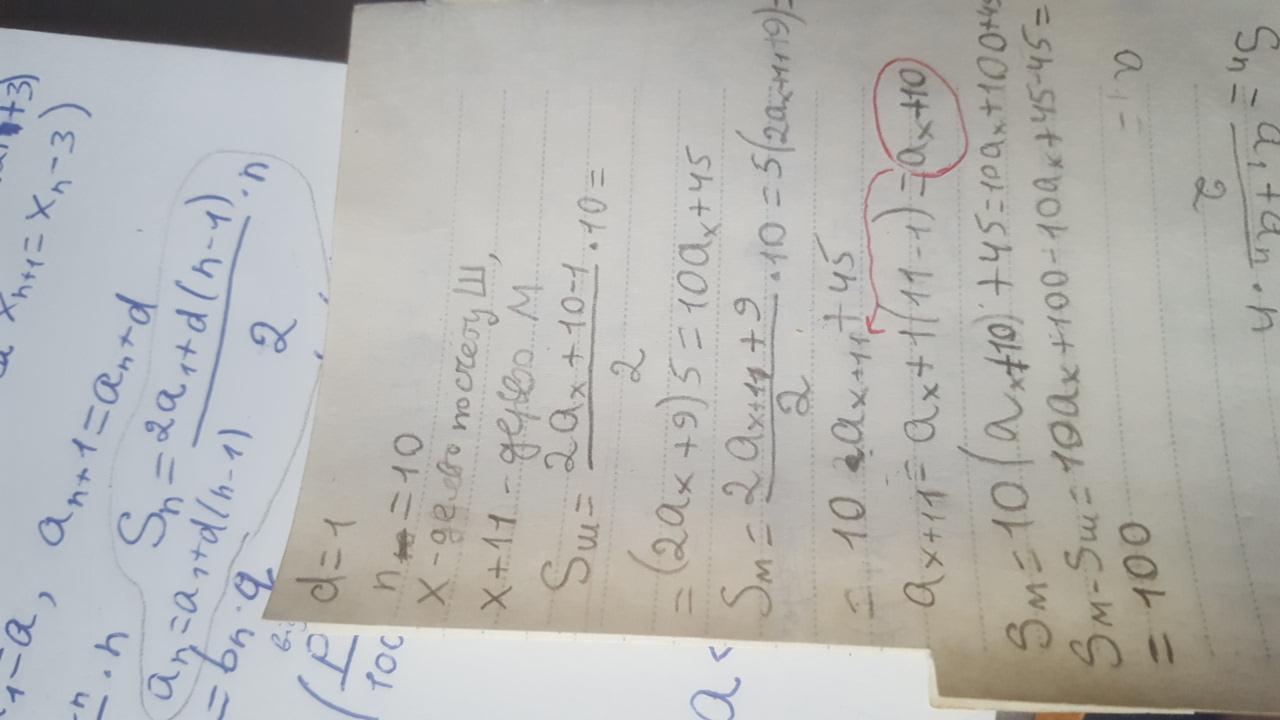 x_{n+1} = x_n - 3)
a_{n+1} = a_n + d
S_n = \frac{2a_1 + d(n-1)}{2} \cdot n
a_n = a_1 + d(n-1)
= b_n \cdot q
d = 1
n = 10
x - дерево по счету Ш,
x + 11 - дерево М
S_ш = \frac{2a_x + 10 - 1}{2} \cdot 10 =
= (2a_x + 9) 5 = 10a_x + 45
S_м = \frac{2a_{x+11} + 9}{2} \cdot 10 = 5(2a_{x+11} + 9) =
= 10 a_{x+11} + 45
a_{x+11} = a_x + 1(11 - 1) = a_x + 10
S_м = 10(a_x + 10) + 45 = 10a_x + 100 + 45
S_м - S_ш = 10a_x + 100 - 10a_x + 45 - 45 =
= 100
S_n = \frac{a_1 + a_n}{2} \cdot n